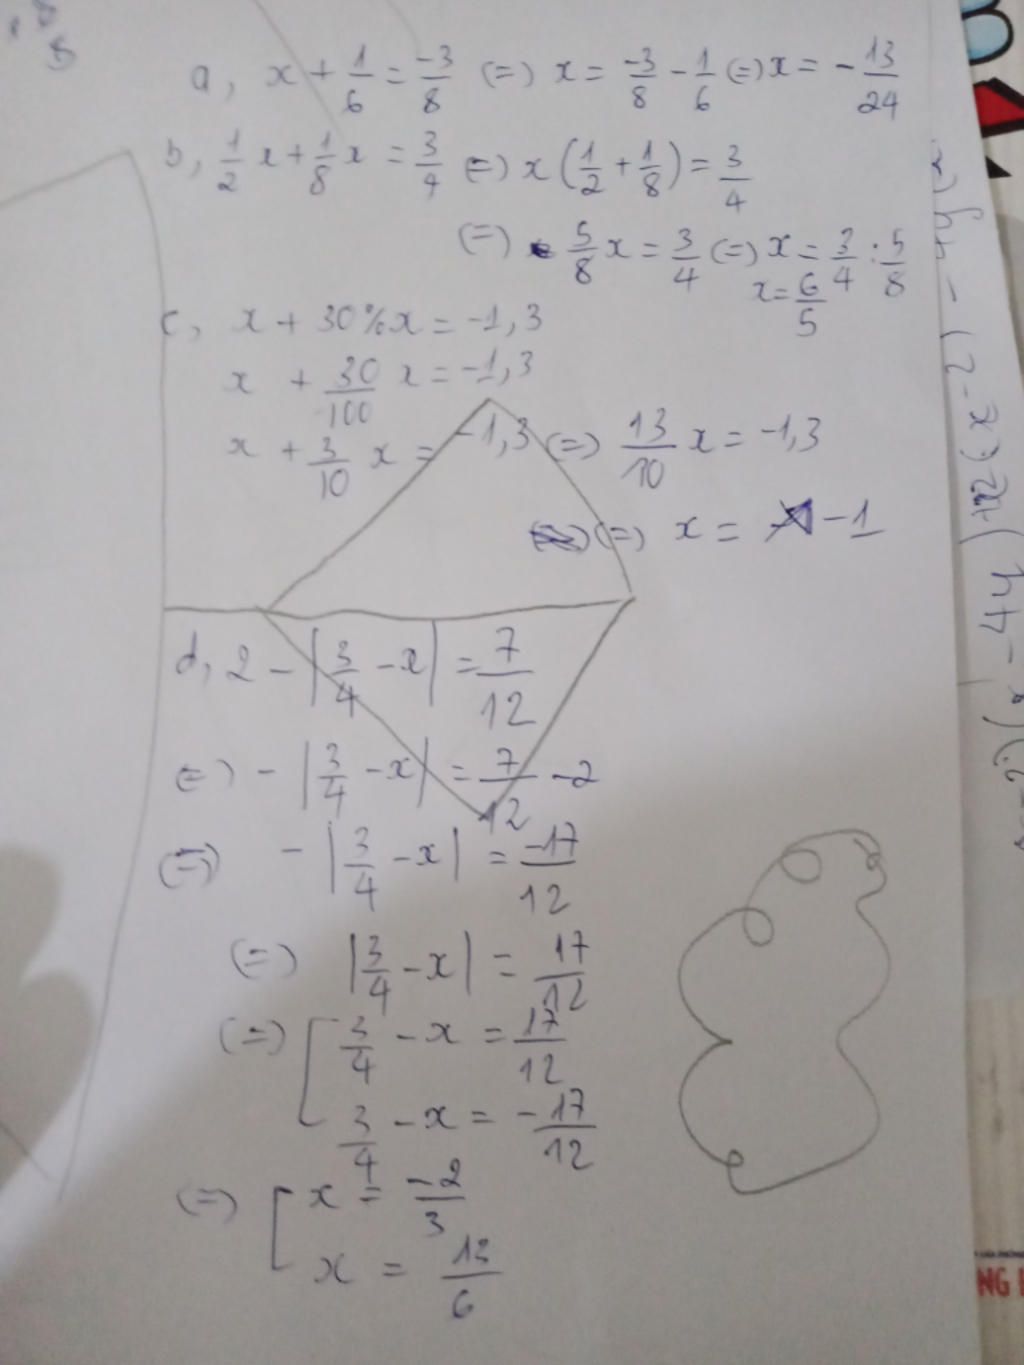 a, x + 1/6 = -3/8 (=) x = -3/8 - 1/6 (=) x = - 13/24
b, 1/2 x + 1/8 x = 3/4 (=) x (1/2 + 1/8) = 3/4
(=) 5/8 x = 3/4 (=) x = 3/4 : 5/8
x = 6/5
c, x + 30% x = -1,3
x + 30/100 x = -1,3
x + 3/10 x = -1,3 (=) 13/10 x = -1,3
(=) x = -1
d, 2 - |3/4 - x| = 7/12
(=) - |3/4 - x| = 7/12 - 2
(=) - |3/4 - x| = -17/12
(=) |3/4 - x| = 17/12
(=) [ 3/4 - x = 17/12
3/4 - x = -17/12
(=) [ x = -2/3
x = 13/6